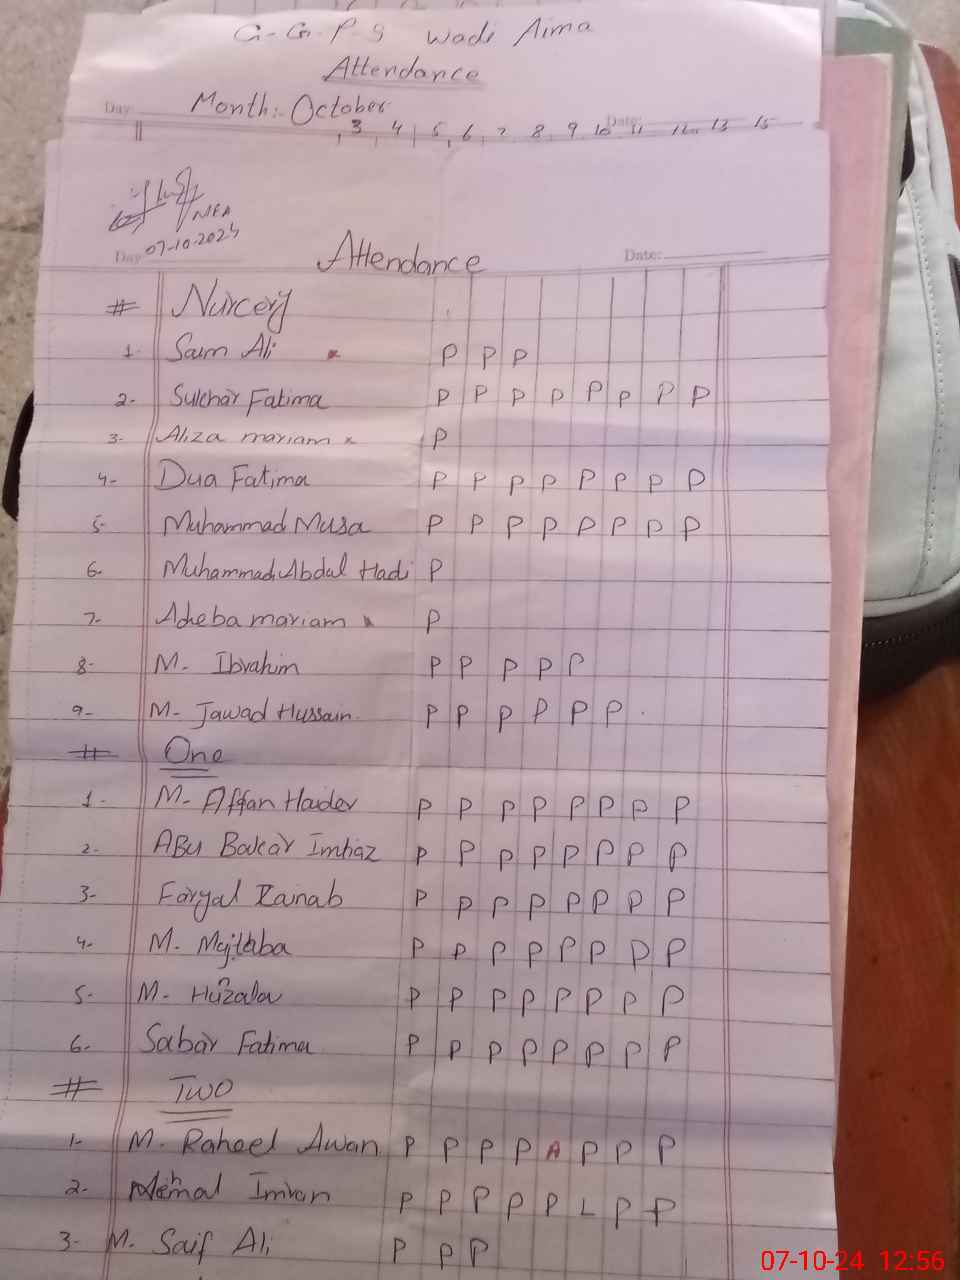 G.G.P.S Wadi Aima
Attendance
Day:
Month:- October
Date:
3 4 5 6 7 8 9 10 11 12 13 15
MEA
07-10-2024
Day
Attendance
Date:
# Nurcery
1- Saim Ali × P P P
2- Sulehar Fatima P P P P P P P P
3- Aliza mariam × P
4- Dua Fatima P P P P P P P P
5- Muhammad Musa P P P P P P P P
6- Muhammad Abdul Hadi P
7- Adeba mariam × P
8- M. Ibrahim P P P P P
9- M. Jawad Hussain P P P P P P .
# One
1- M. Affan Haider P P P P P P P P
2- ABu Bakar Imtiaz P P P P P P P P
3- Faryal Zainab P P P P P P P P
4- M. Mujtaba P P P P P P P P
5- M. Huzaifa P P P P P P P P
6- Sabar Fatima P P P P P P P P
# Two
1- M. Raheel Awan P P P P A P P P
2- Imran P P P P P L P P
3- M. Saif Ali P P P
07-10-24 12:56